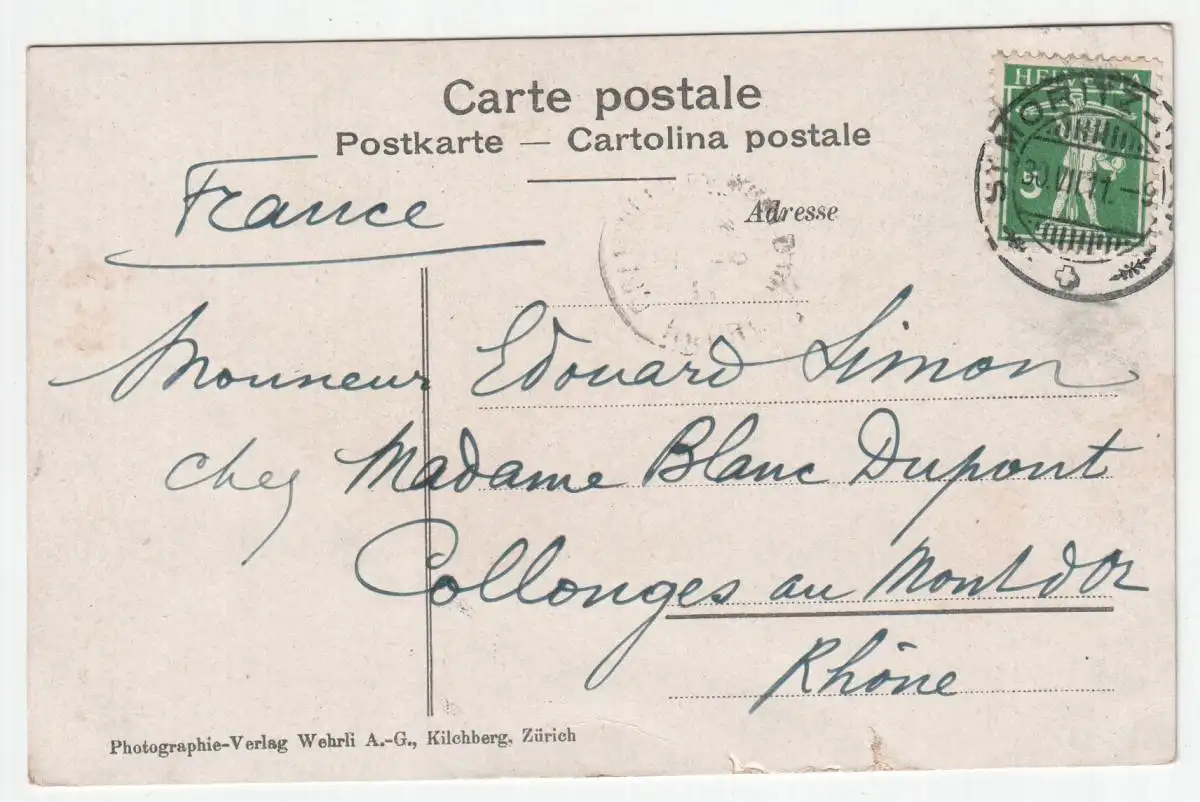 Carte postale
Postkarte — Cartolina postale
HELVETIA
5
ST. MORITZ
France
Adresse
Monsieur Edouard Simon
chez Madame Blanc Dupont
Collonges au Mont d'Or
Rhône
Photographie-Verlag Wehrli A.-G., Kilchberg, Zürich